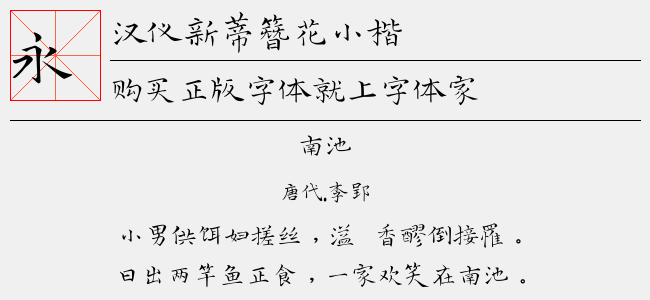 永
汉仪新蒂簪花小楷
购买正版字体就上字体家
南池
唐代.李郢
小男供饵妇搓丝，溢 香醪倒接罹。
日出两竿鱼正食，一家欢笑在南池。